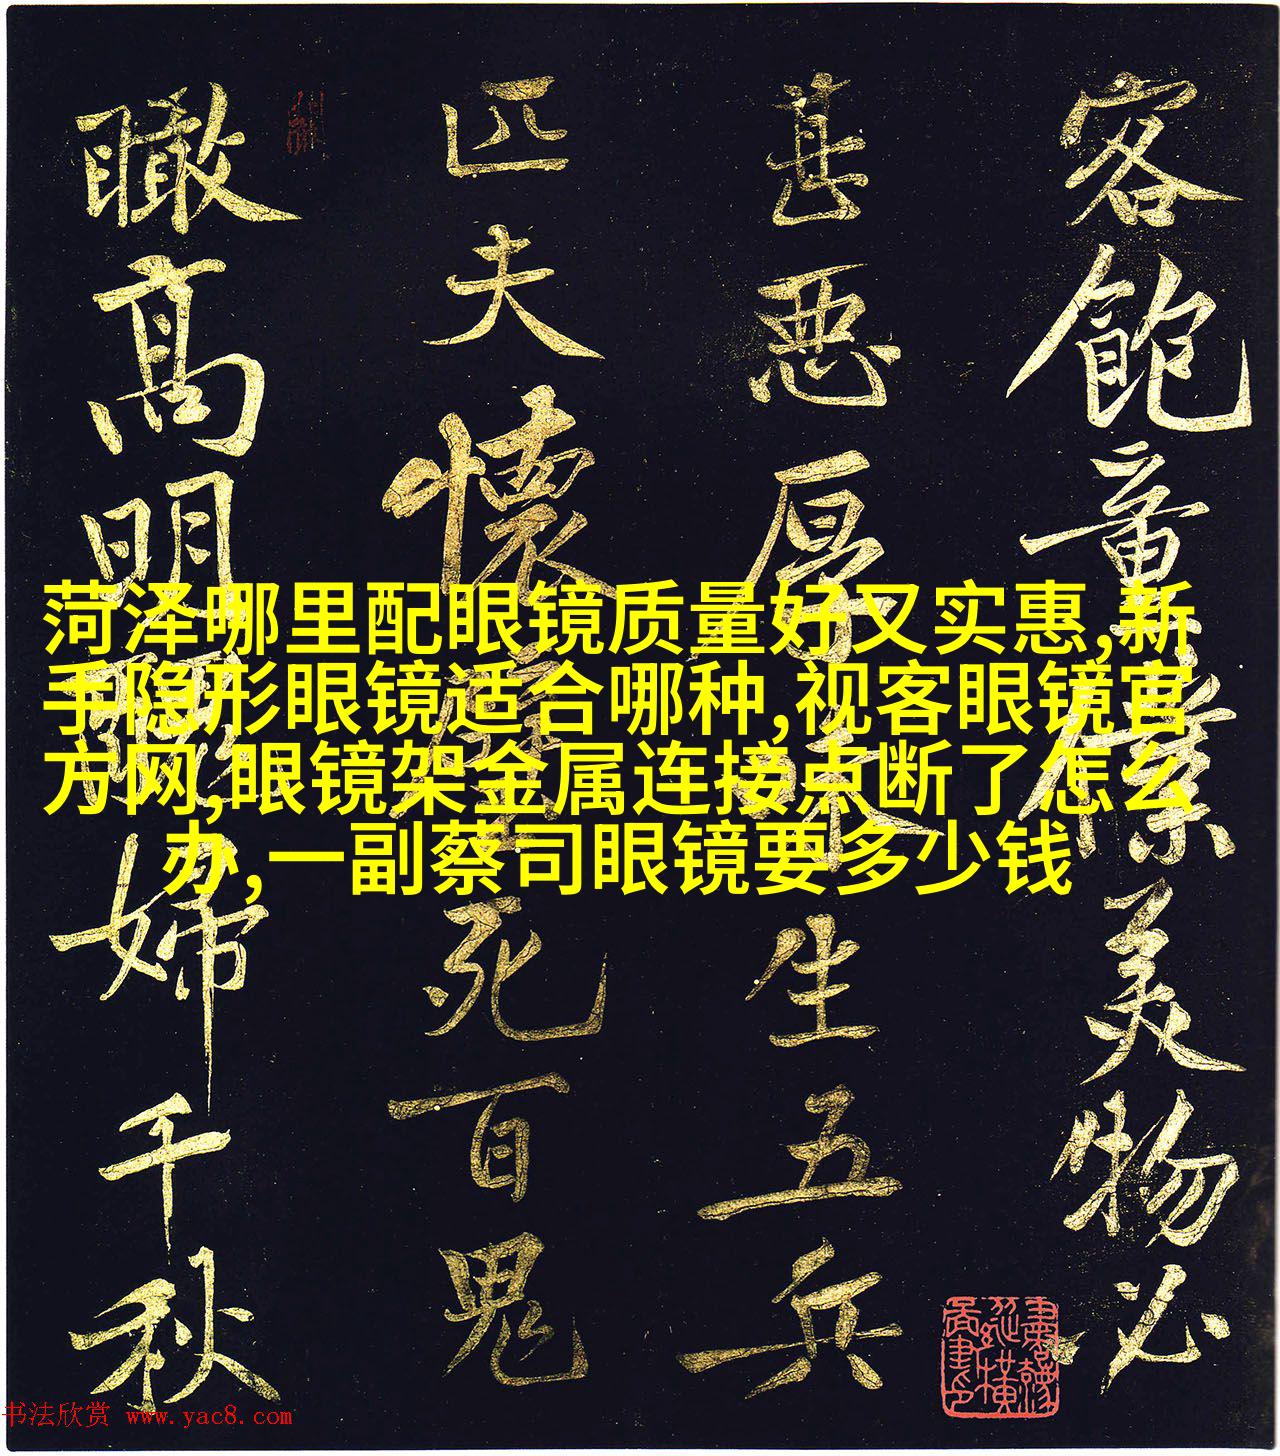 客飽童僕美物必
甚惡厚味生五兵
匹夫懷璧死百鬼
瞰高明
婦千秋
菏泽哪里配眼镜质量好又实惠,新
手隐形眼镜适合哪种,视客眼镜官
方网,眼镜架金属连接点断了怎么
办,一副蔡司眼镜要多少钱
书法欣赏 www.yac8.com